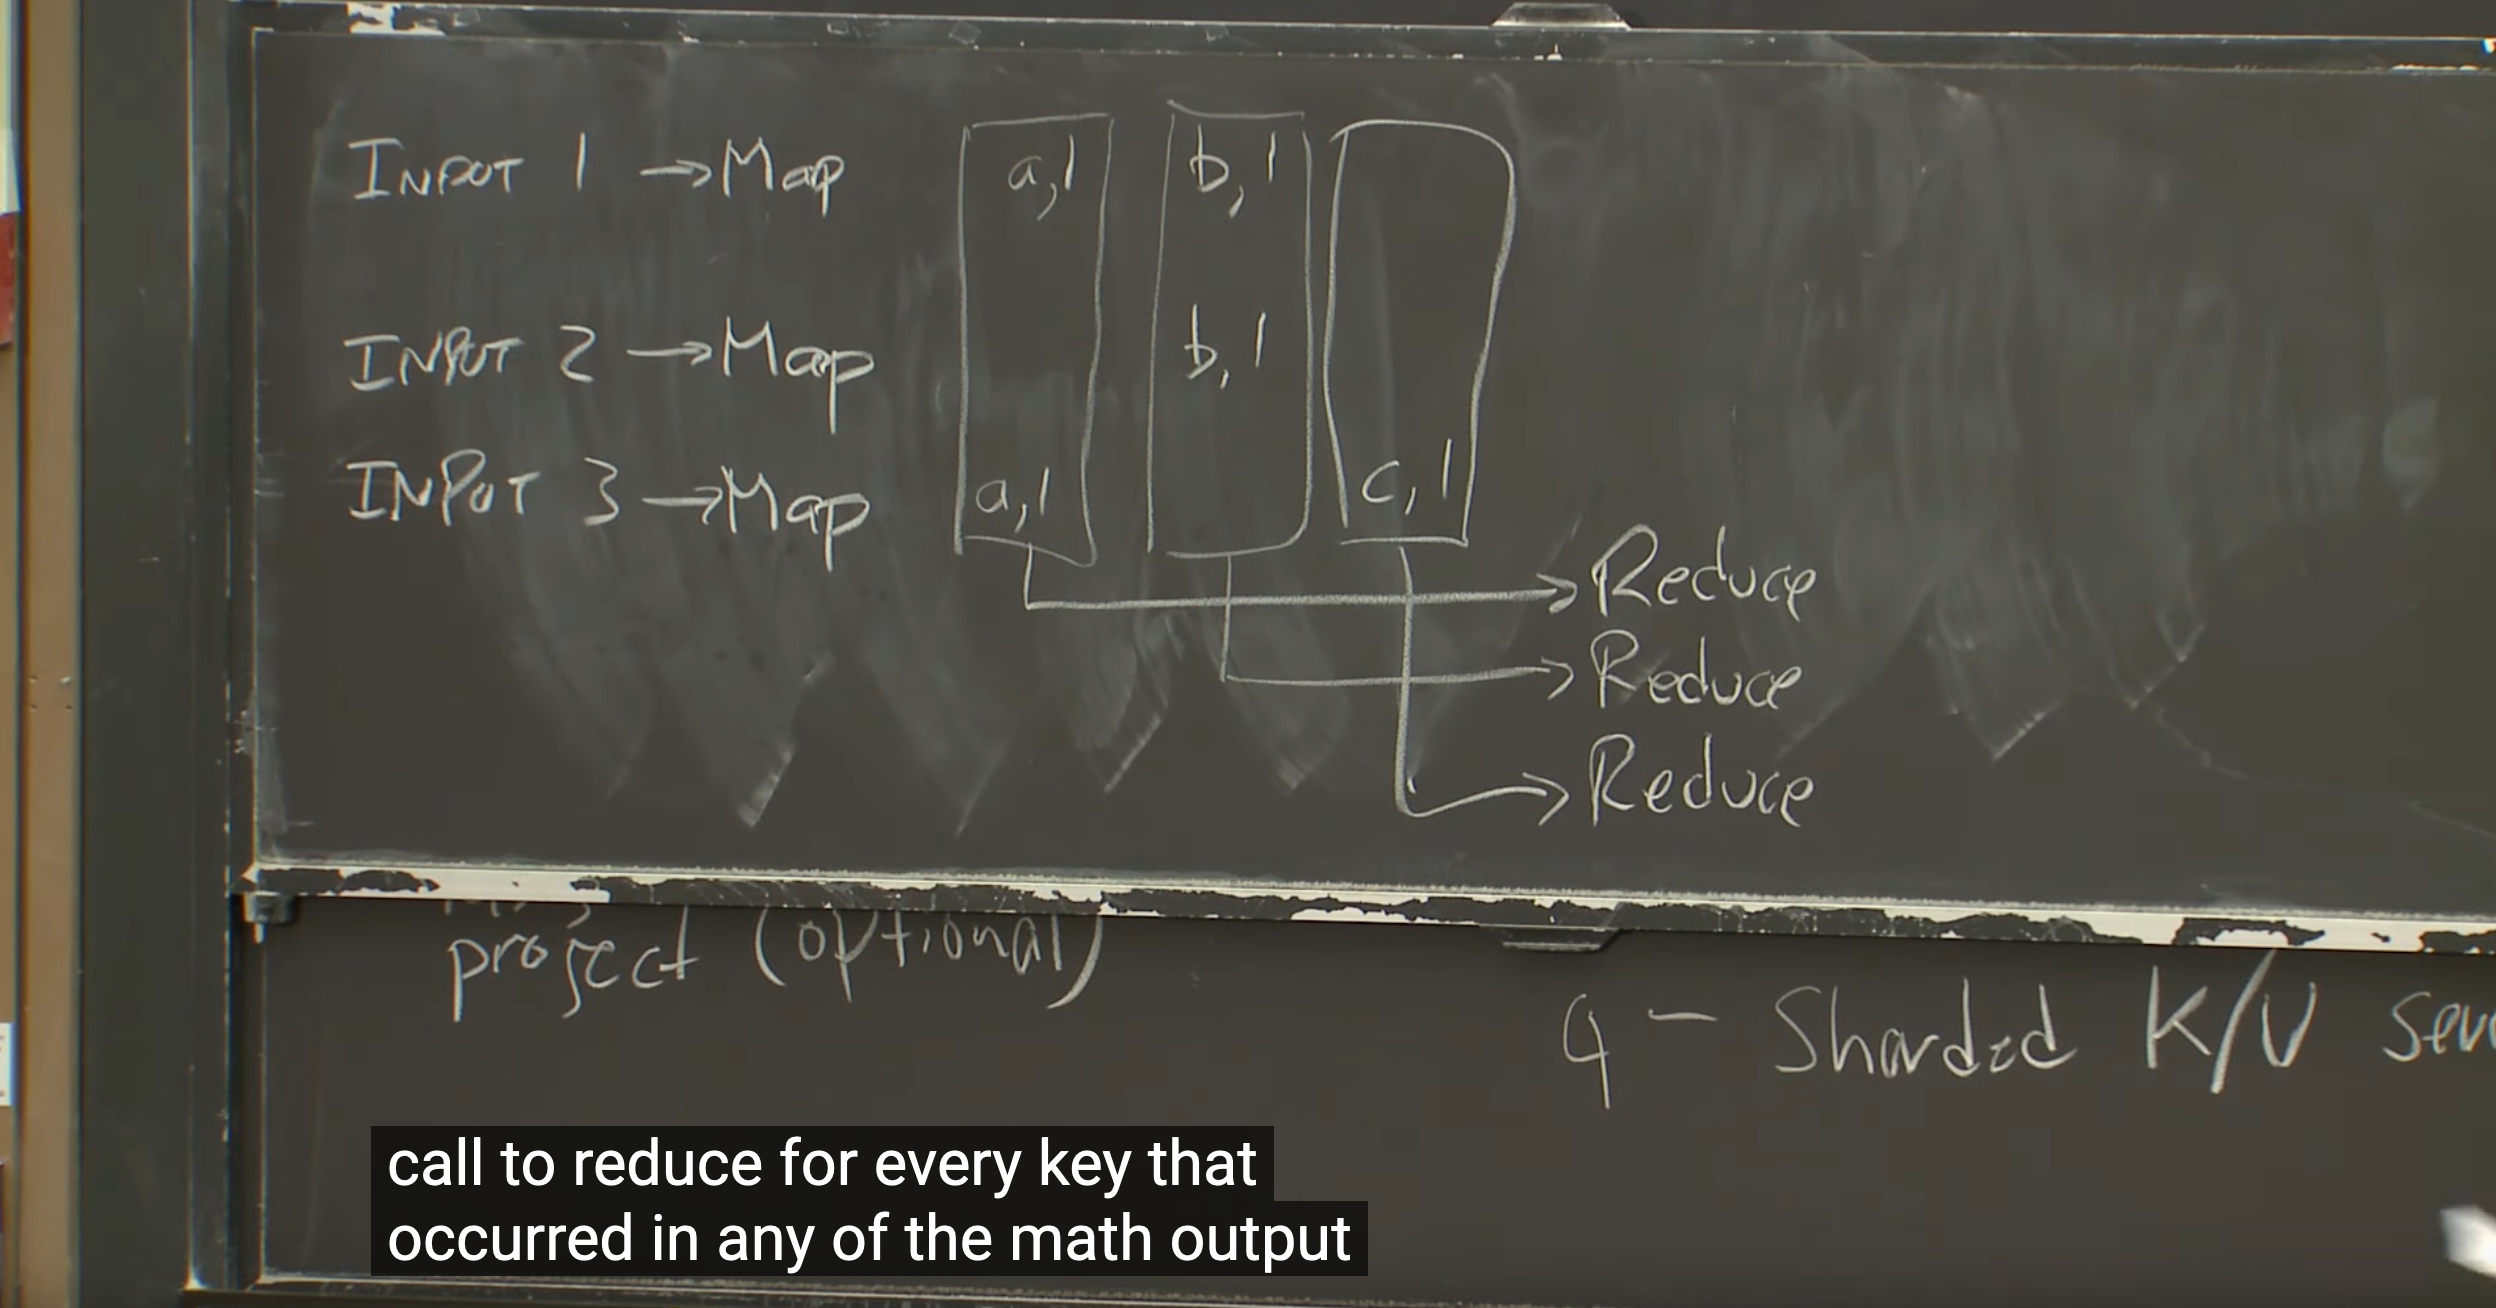 INPUT 1 → Map a,1 b,1
INPUT 2 → Map b,1
INPUT 3 → Map a,1 c,1
→ Reduce
→ Reduce
→ Reduce
project (optional)
4 - Sharded K/V
call to reduce for every key that
occurred in any of the math output